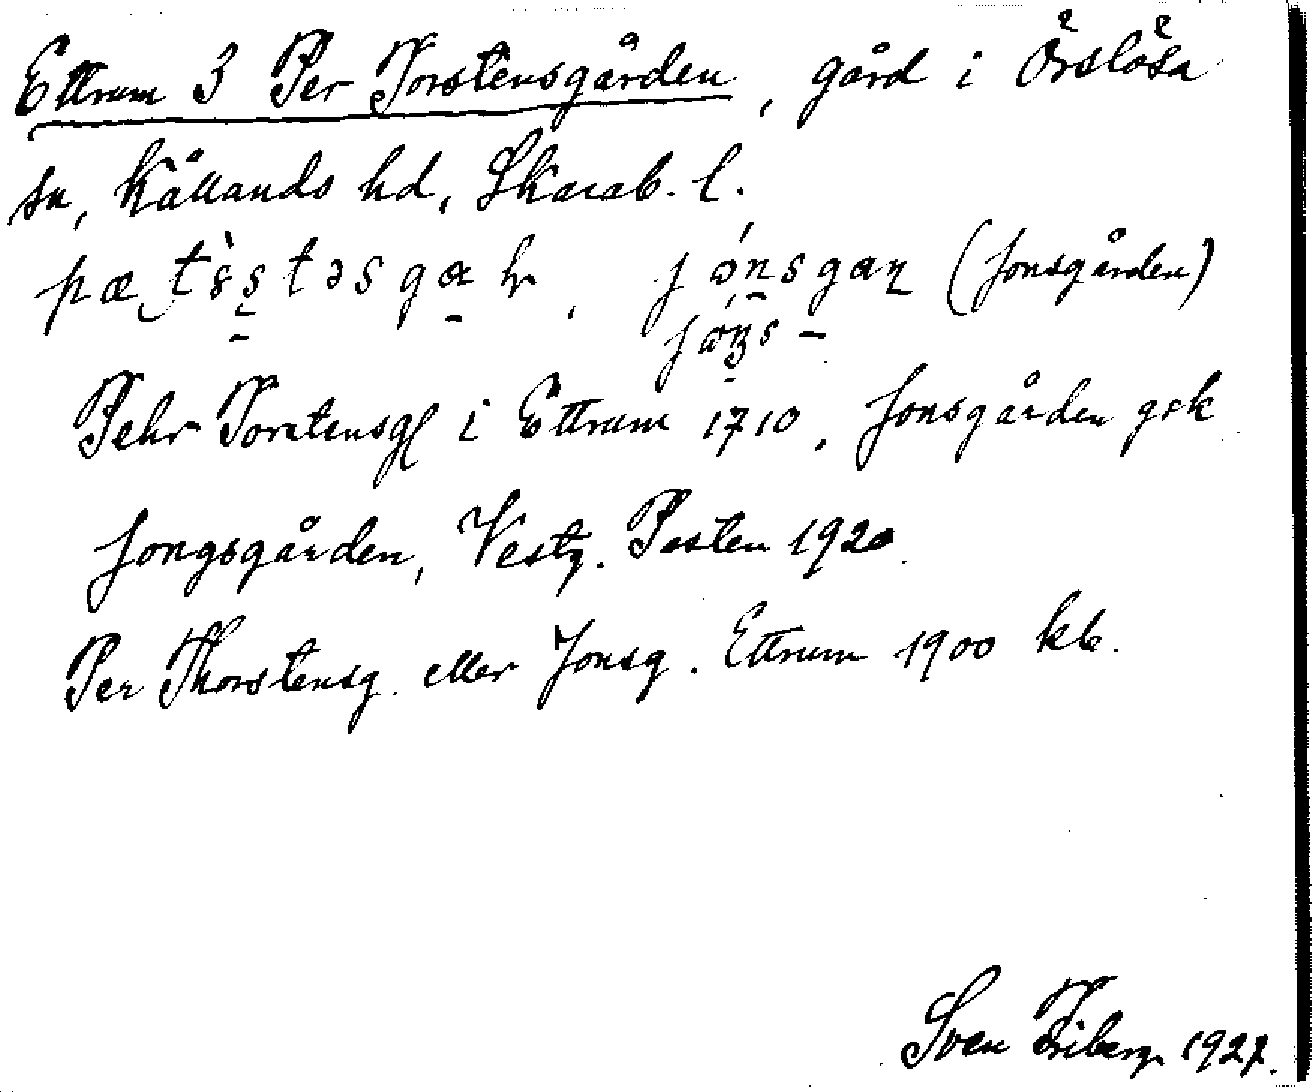 Ettrum 3 Per Torstensgården, gård i Örslösa
sn, Kållands hd, Skarab. l.
(Jonsgården)
Pehr Torstensg i Ettrum 1710, Jonsgården gsk
Jongsgården, Vestg. Posten 1920.
Per Thorstensg. eller Jonsg. Ettrum 1900 kb.
Sven Friberg 1927.